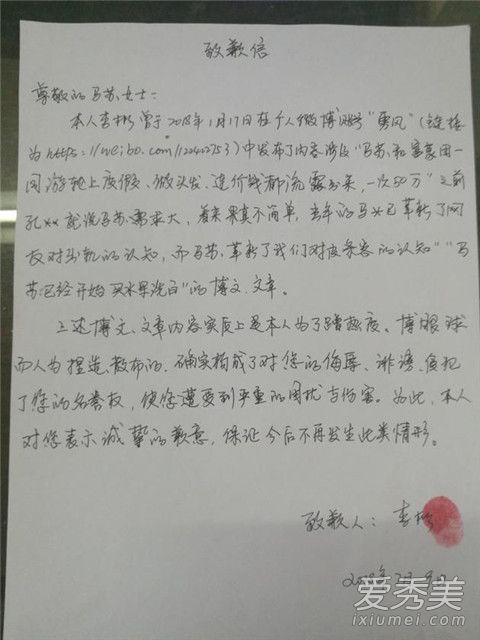 致歉信
尊敬的马苏女士：
本人李彬曾于2018年1月17日在个人微博账号"勇风"（链接
为https://weibo.com/120442753）中发布了内容涉及"马苏和富豪团一
同游艇上度假、做头发，造价钱都流露出来，一次50万""之前
孔xx就说马苏需求大，看来果真不简单，去年的马x已革新了网
友对出轨的认知，而马苏革新了我们对皮条客的认知""马
苏已经开始买水军洗白"的博文、文章。
上述博文、文章内容实质上是本人为了蹭热度、博眼球
而人为捏造、散布的，确实构成了对您的侮辱、诽谤，侵犯
了您的名誉权，使您遭受到严重的困扰与伤害。为此，本人
对您表示诚挚的歉意，保证今后不再发生此类情形。
致歉人：李彬
2018年
爱秀美
ixiumei.com